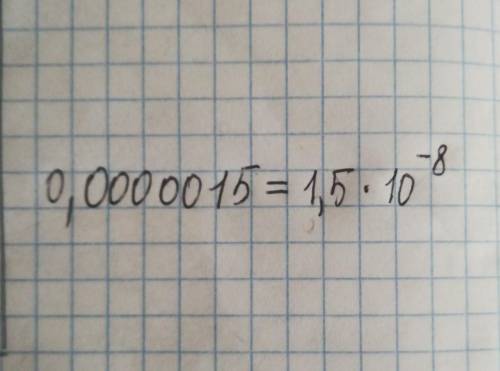 0,0000015 = 1,5 · 10⁻⁸